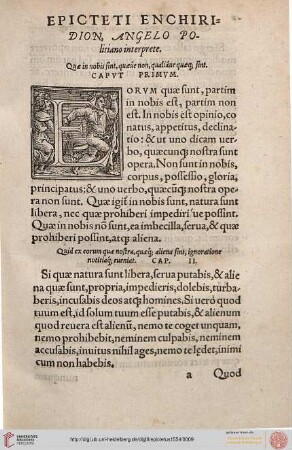 EPICTETI ENCHIRI-
DION, ANGELO PO-
litiano interprete.
Quæ in nobis sint, quæue non, qualiáue quæq; sint.
CAPVT PRIMVM.
EORVM quæ sunt, partim
in nobis est, partim non
est. In nobis est opinio, co
natus, appetitus, declina-
tio: & ut uno dicam uer-
bo, quæcunq; nostra sunt
opera. Non sunt in nobis,
corpus, possessio, gloria,
principatus: & uno uerbo, quæcũq; nostra ope
ra non sunt. Quæ igiť in nobis sunt, natura sunt
libera, nec quæ prohiberi impediri´ue possint.
Quæ in nobis nõ sunt, ea imbecilla, serua, & quæ
prohiberi possint, atq; aliena.
Quid ex eorum quæ nostra, quæq; aliena sint, ignoratione
notitiaq; eueniat. CAP. II.
Si quæ natura sunt libera, serua putabis, & alie
na quæ sunt, propria, impedieris, dolebis, turba-
beris, incusabis deos atq; homines. Si uerò quod
tuum est, id solum tuum esse putabis, & alienum
quod reuera est alienũ, nemo te coget unquam,
nemo prohibebit, neminem culpabis, neminem
accusabis, inuitus nihil ages, nemo te lędet, inimi
cum non habebis.
a Quod
UNIVERSITÄTS-
BIBLIOTHEK
HEIDELBERG
http://digi.ub.uni-heidelberg.de/diglit/epictetus1554/0009